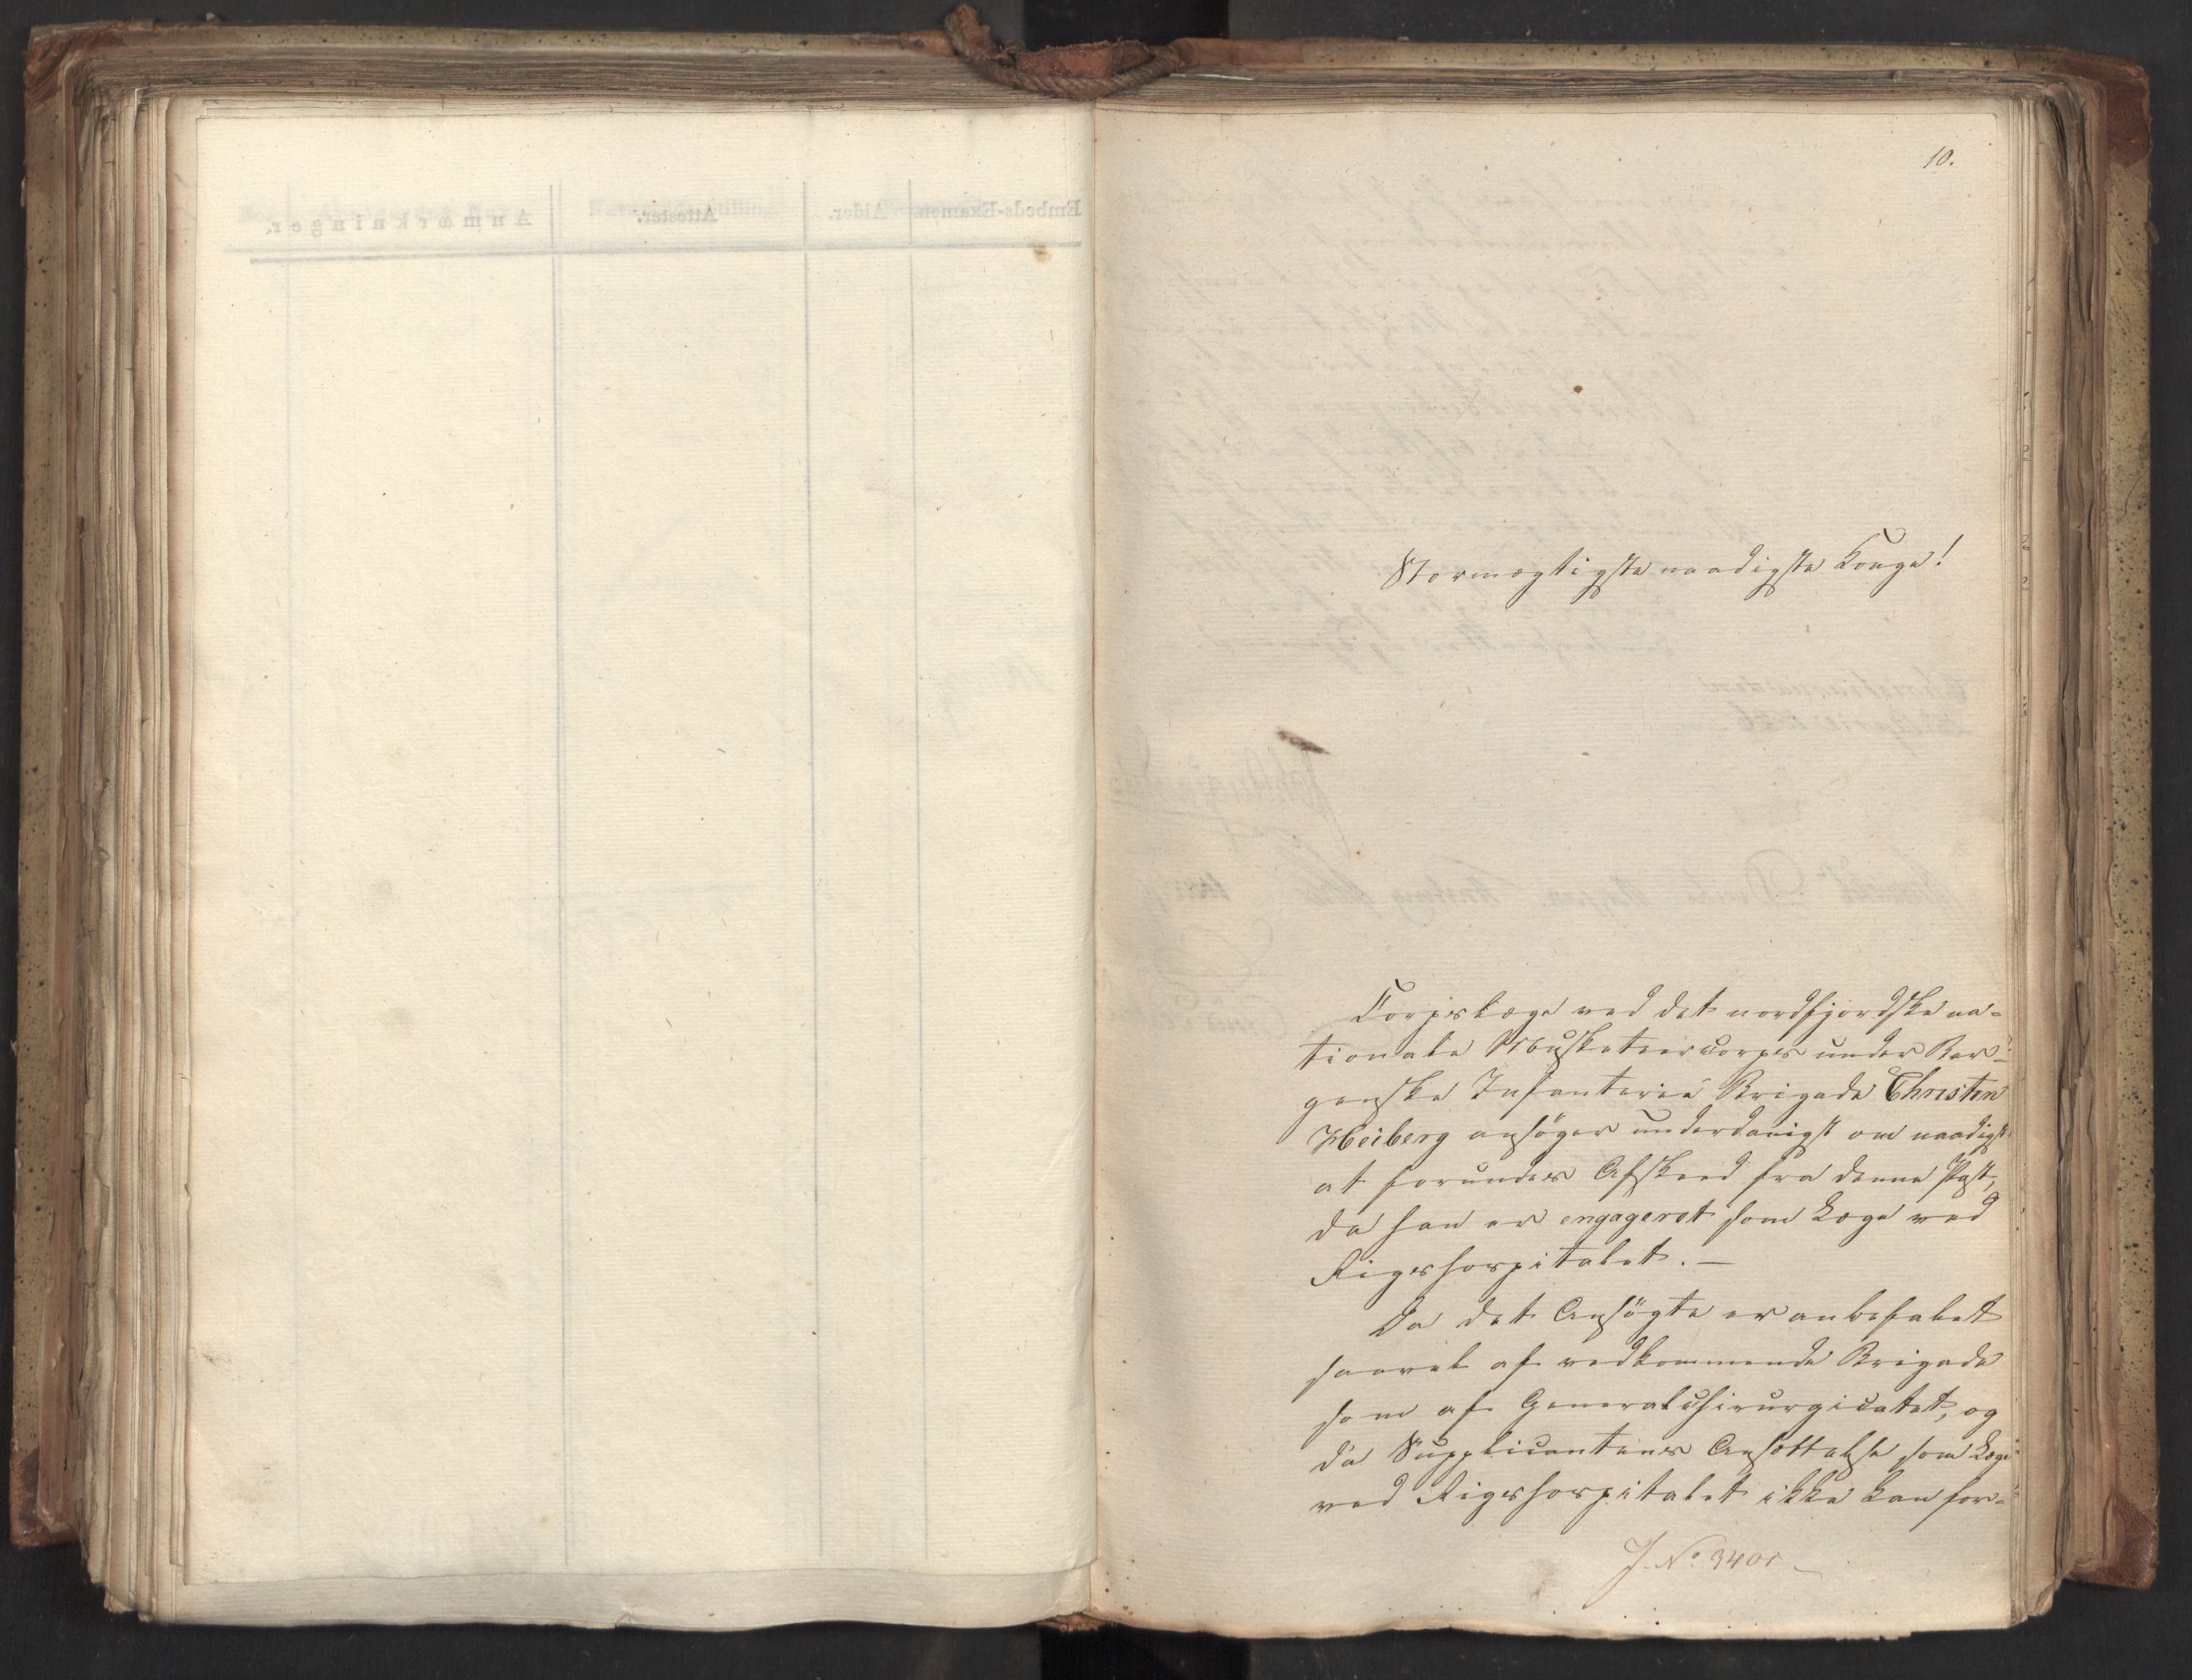 10.
Stormægtigste naadigste Konge!
Corpslæge ved det nordfjordske na-
tionale Musketeercorps under Ber-
genske Infanterie Brigade Christen
Heiberg ansöger underdanigst om naadigst
at forundes Afskeed fra denne Post,
da han er engageret som Læge ved
Rigshospitalet. —
Da det Ansögte er anbefalet
saavel af vedkommende Brigade
som af Generalchirurgicatet, og
da Supplicantens Ansættelse som Læge
ved Rigshospitalet ikke kan for-
J. No. 3401